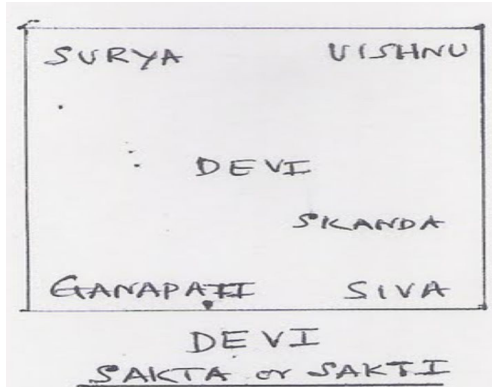 SURYA VISHNU
DEVI
SKANDA
GANAPATI SIVA
DEVI
SAKTA or SAKTI